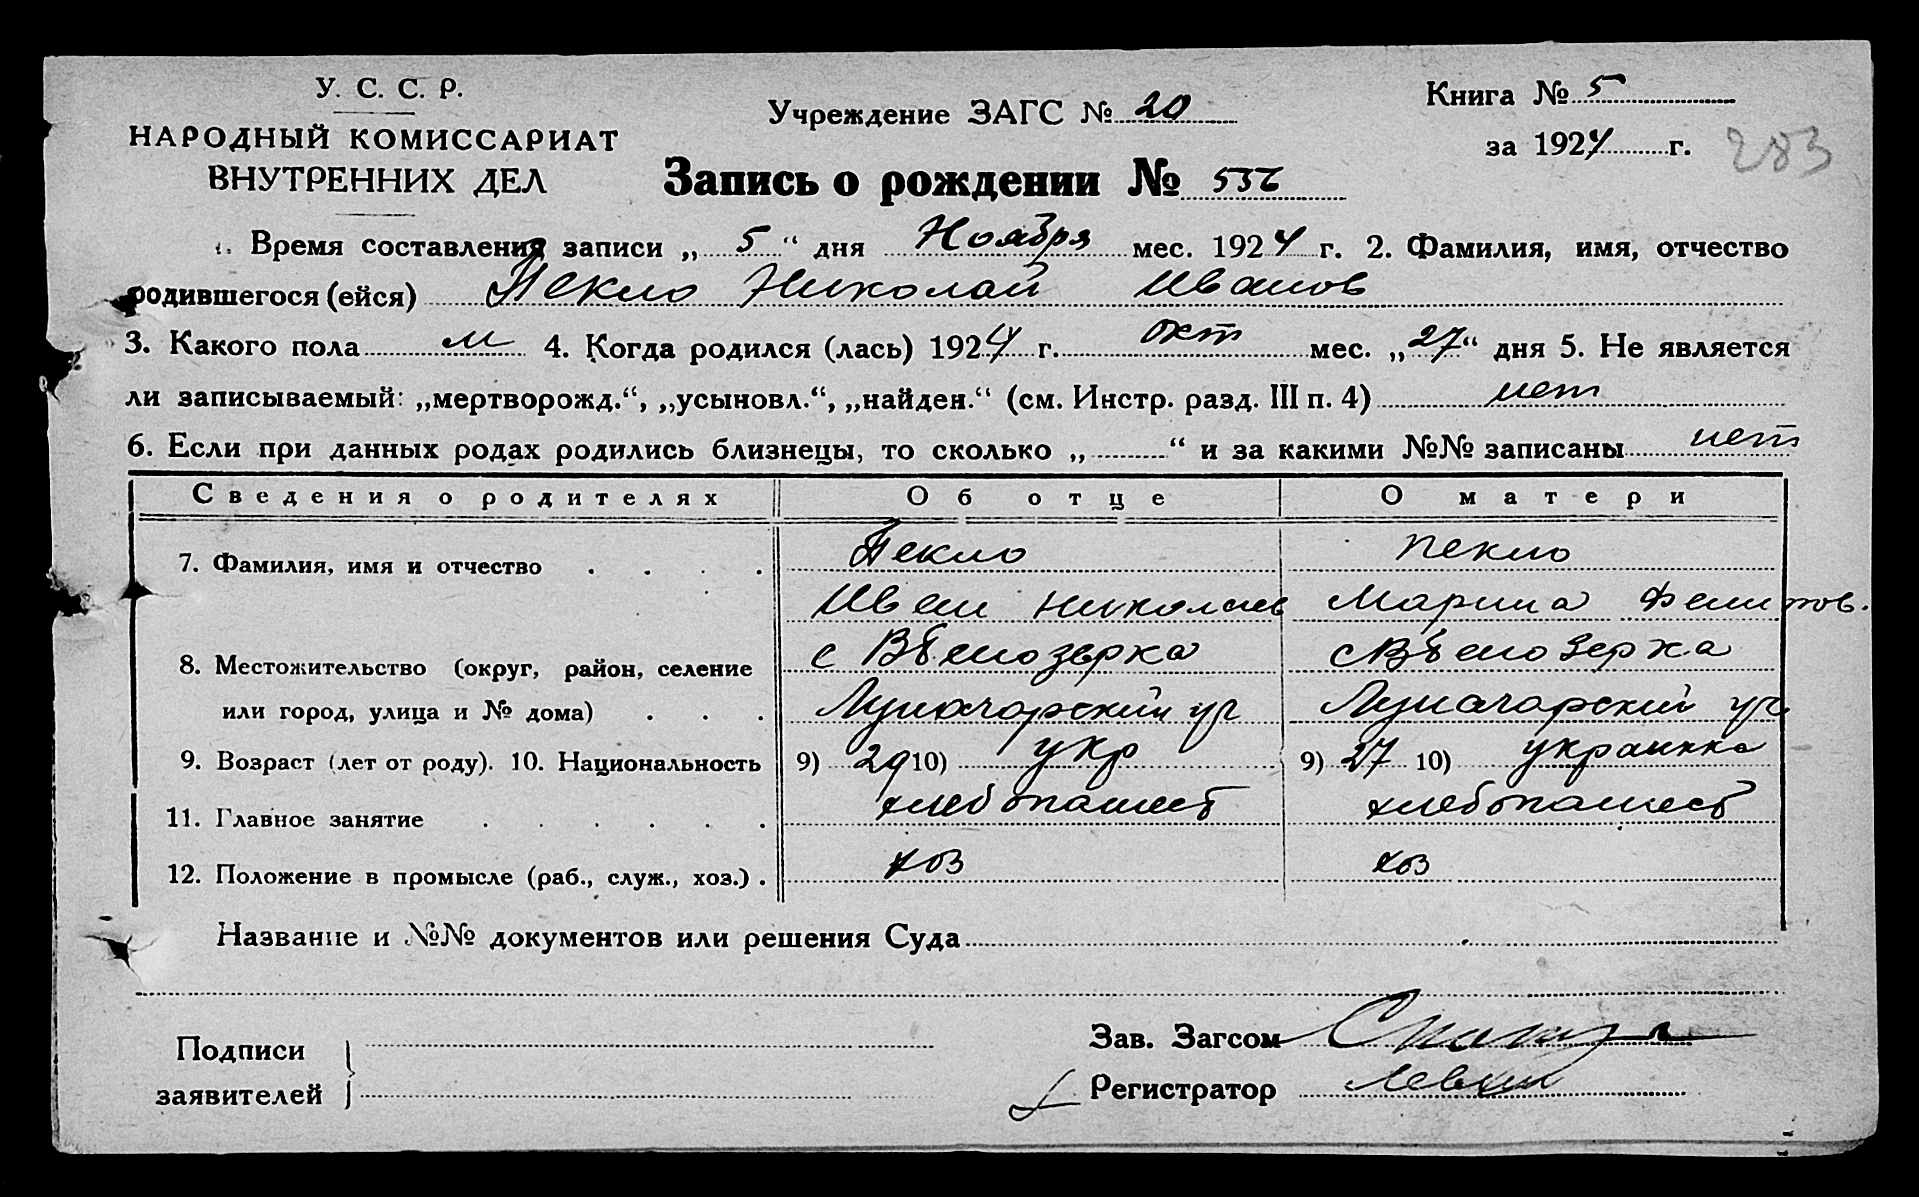 У. С. С. Р.
НАРОДНЫЙ КОМИССАРИАТ
ВНУТРЕННИХ ДЕЛ
Учреждение ЗАГС № 20
Книга № 5
за 1924 г.
283
Запись о рождении № 536
1. Время составления записи „ 5 “ дня Ноября мес. 1924 г. 2. Фамилия, имя, отчество
родившегося (ейся) Пекло Николай Иванов
3. Какого пола м 4. Когда родился (лась) 1924 г. окт мес. „ 27 “ дня 5. Не является
ли записываемый: „мертворожд.“, „усыновл.“, „найден.“ (см. Инстр. разд. III п. 4) нет
6. Если при данных родах родились близнецы, то сколько „ “ и за какими №№ записаны нет
Сведения о родителях Об отце О матери
7. Фамилия, имя и отчество . . . . Пекло Пекло
Иван Николаев Марина Филипов.
8. Местожительство (округ, район, селение с Вбелозерка с Вбелозерка
или город, улица и № дома) . . . Луначарский уч Луначарский уч
9. Возраст (лет от роду). 10. Национальность 9) 29 10) укр 9) 27 10) украинка
11. Главное занятие . . . . . . хлебопашест хлебопашест
12. Положение в промысле (раб., служ., хоз.) . хоз хоз
Название и №№ документов или решения Суда
Подписи
заявителей
Зав. Загсом
Регистратор